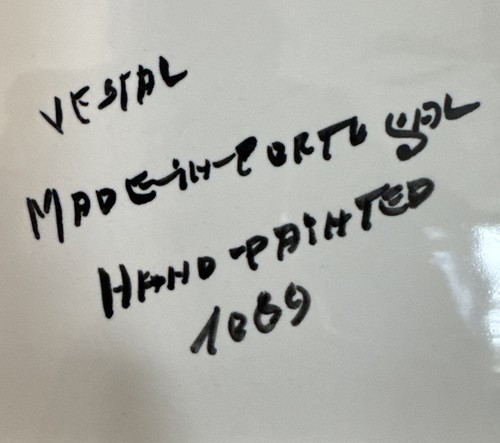 VESTAL
MADE-iN-PORTUGAL
HAND-PAiNTED
1069